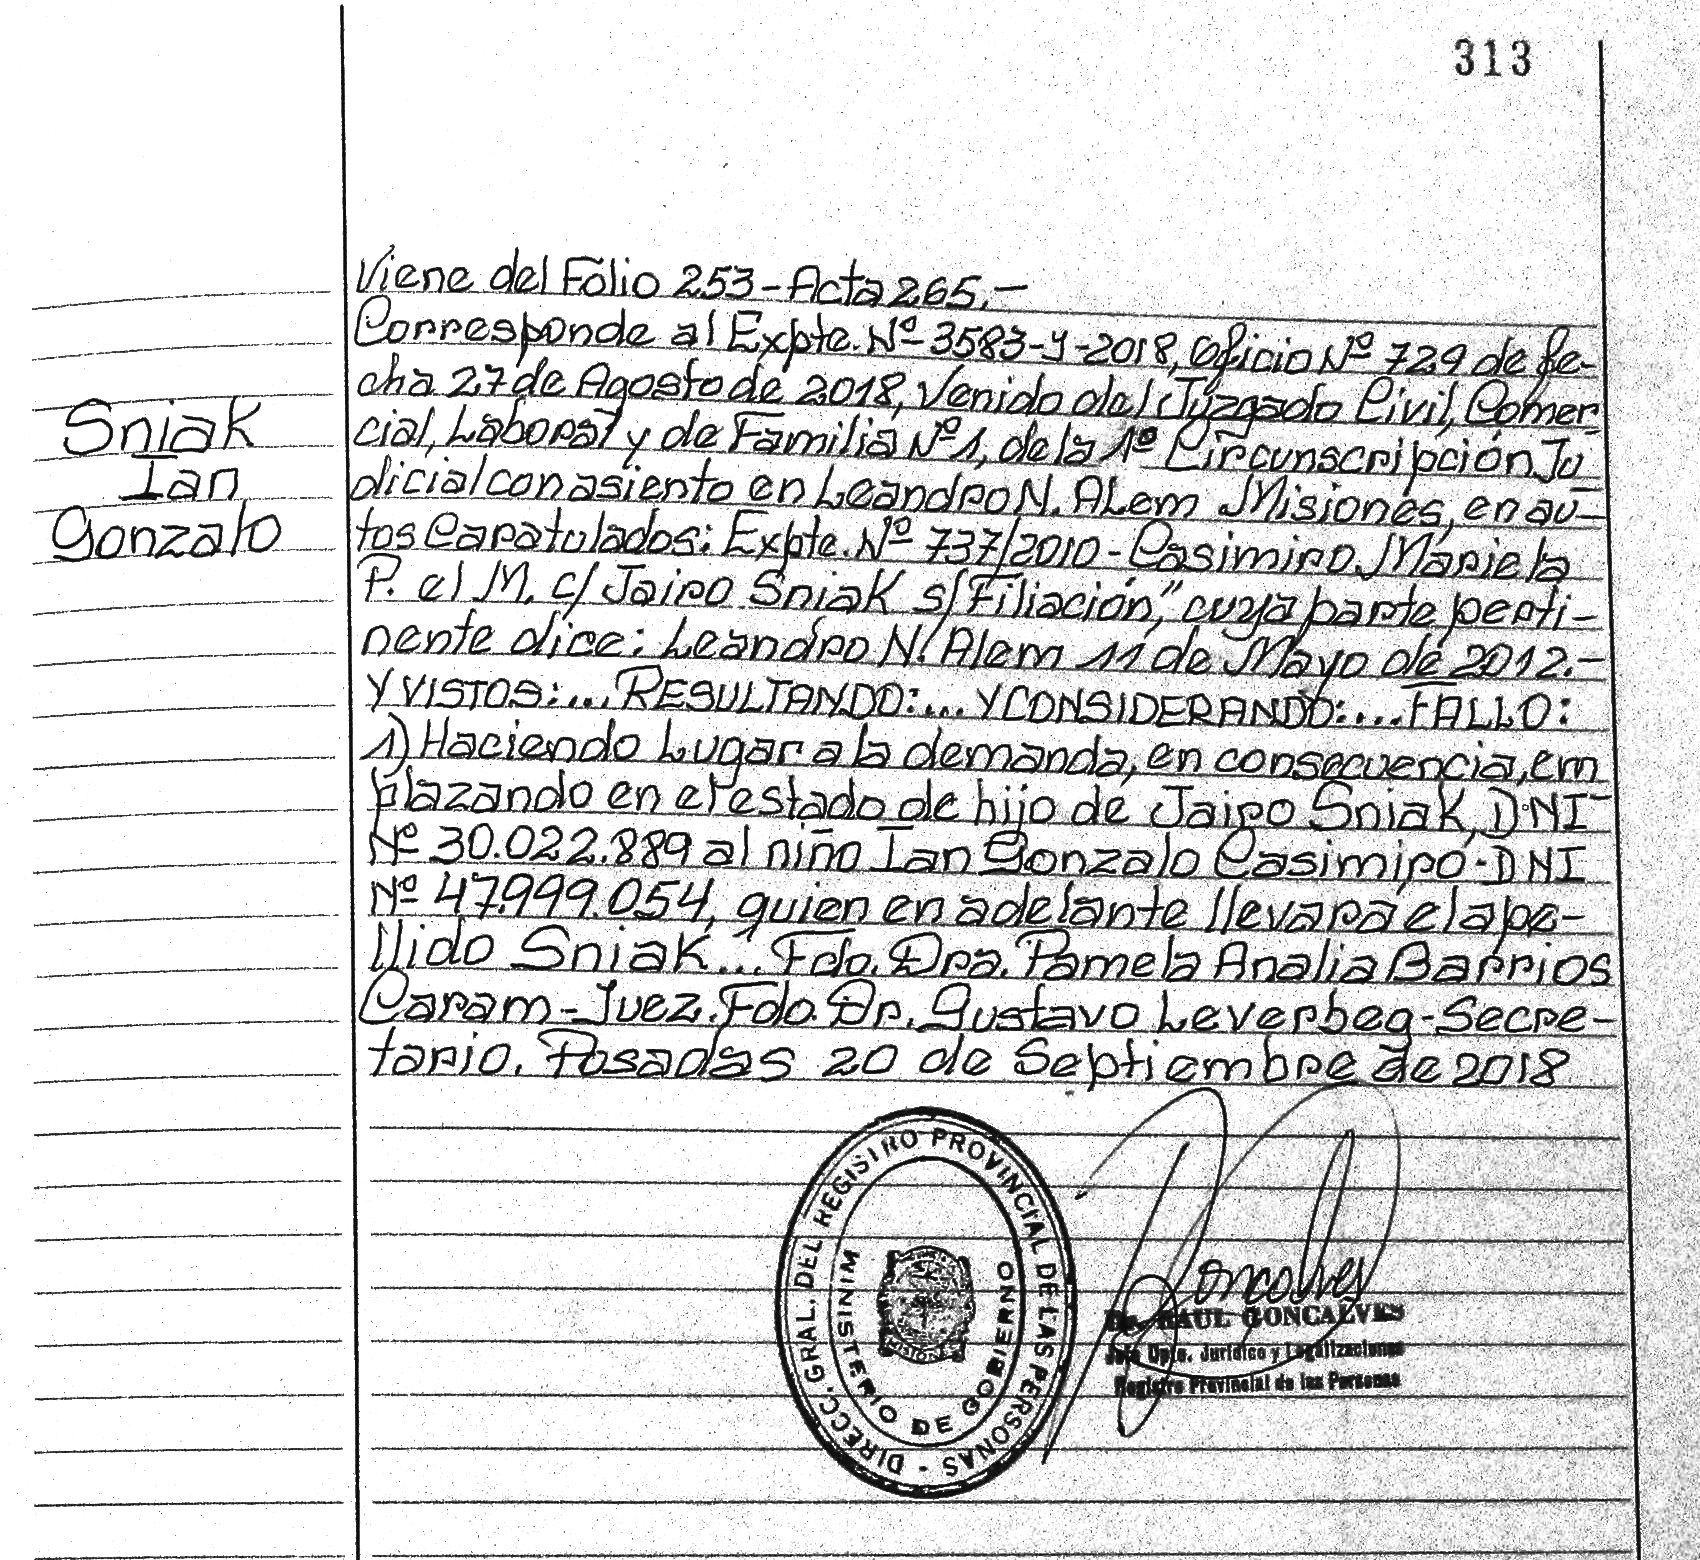 313
Viene del Folio 253-Acta 265.-
Corresponde al Expte. Nº-3583-Y-2018, Oficio Nº 729 de fe-
cha 27 de Agosto de 2018, Venido del Juzgado Civil, Comer
cial, Laboral y de Familia Nº1, de la 1ª Circunscripción Ju
dicial con asiento en Leandro N. ALem Misiones, en au-
tos Caratulados: Expte. Nº 737/2010-Casimiro Mariela
P. el M. c/ Jairo Sniak s/Filiación," cuya parte perti-
nente dice: Leandro N. Alem 11 de Mayo de 2012.-
Y VISTOS:... RESULTANDO:... Y CONSIDERANDO:... FALLO:
1) Haciendo Lugar a la demanda, en consecuencia, em
plazando en el estado de hijo de Jairo Sniak, DNI-
Nº 30.022.889 al niño Ian Gonzalo Casimiro-DNI
Nº 47.999.054, quien en adelante llevará el ape-
llido Sniak... Fdo. Dra. Pamela Analia Barrios
Caram-Juez. Fdo. Dr. Gustavo Leverbeg-Secre-
tario. Posadas 20 de Septiembre de 2018
Sniak
Ian
Gonzalo
DIRECC. GRAL. DEL REGISTRO PROVINCIAL DE LAS PERSONAS -
MINISTERIO DE GOBIERNO
Goncalves
Dr. RAUL GONCALVES
Jefe Dpto. Jurídico y Legalizaciones
Registro Provincial de las Personas